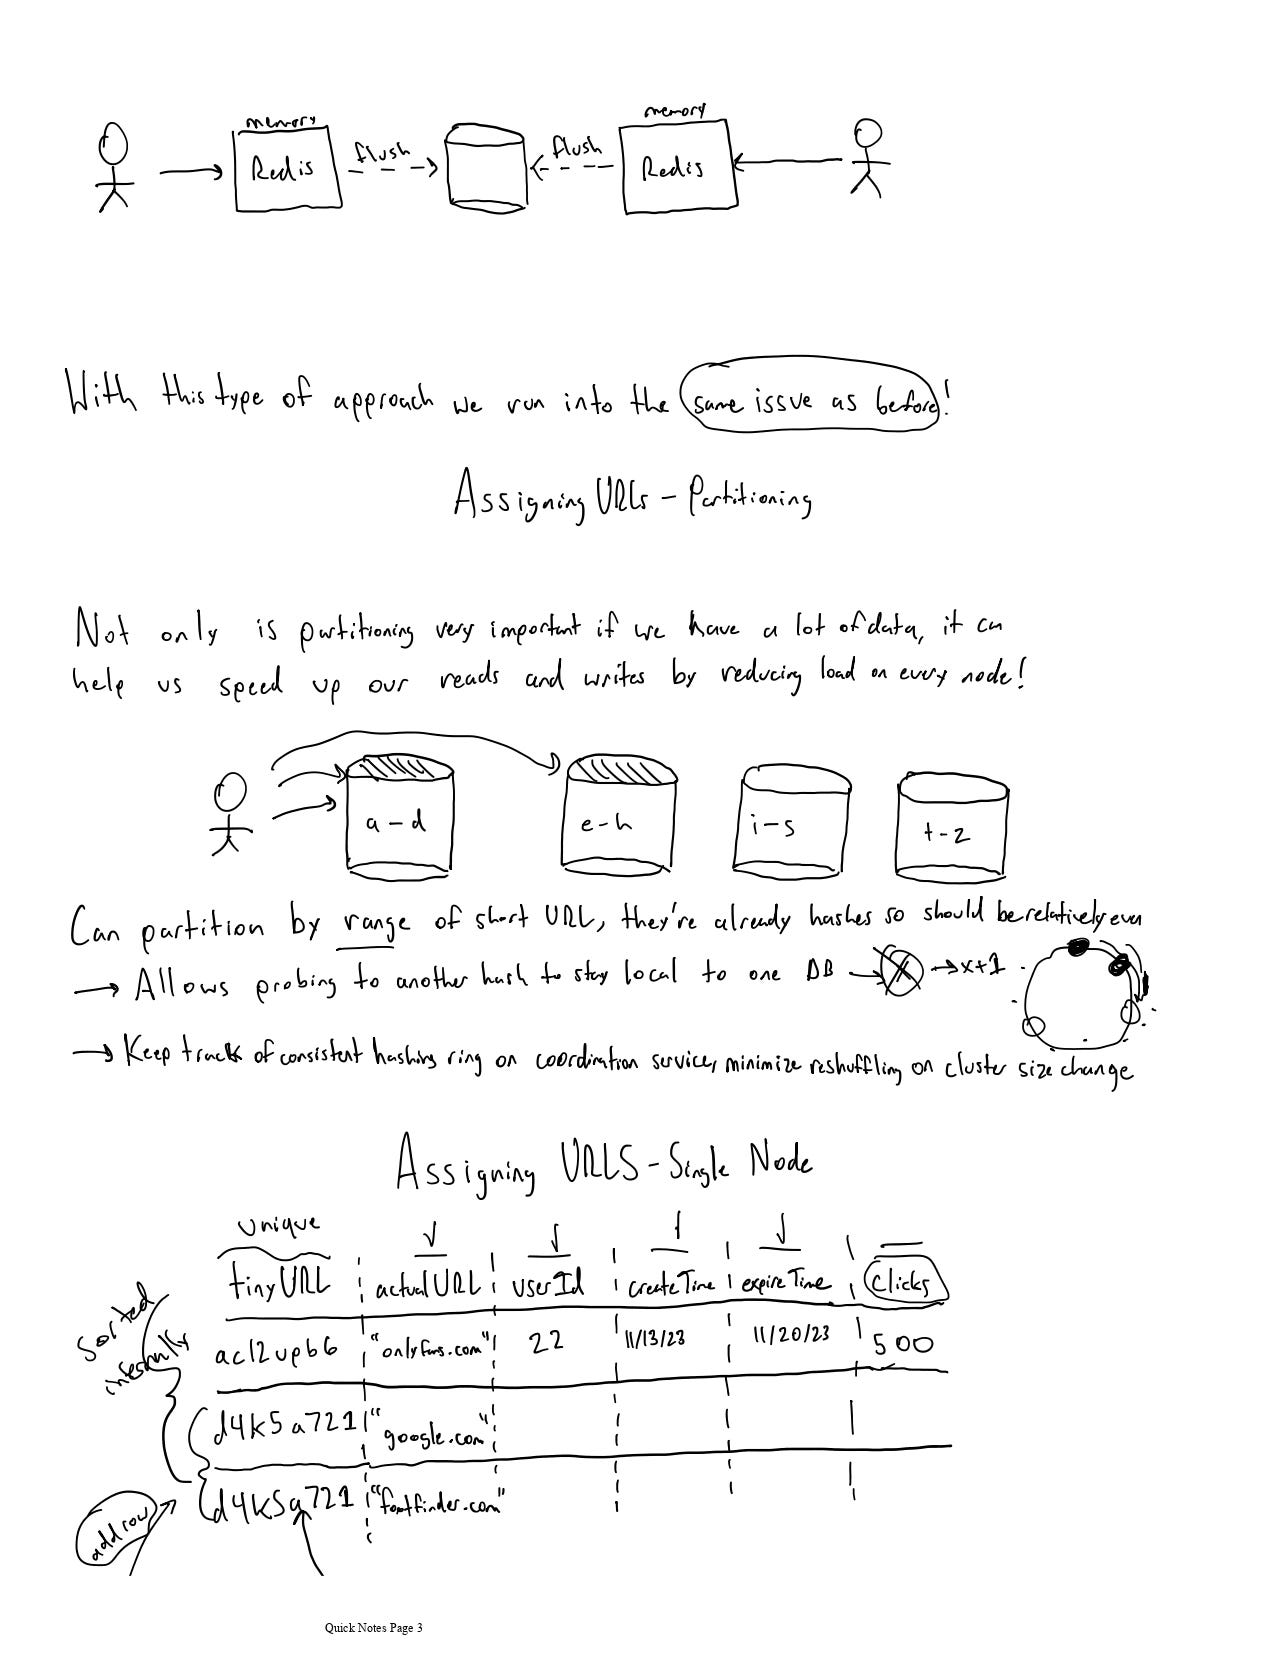 memory
memory
Redis flush flush Redis
With this type of approach we run into the same issue as before!
Assigning URLs - Partitioning
Not only is partitioning very important if we have a lot of data, it can
help us speed up our reads and writes by reducing load on every node!
a-d e-h i-s t-z
Can partition by range of short URL, they're already hashes so should be relatively even
→ Allows probing to another hash to stay local to one DB → X → x+1
→ Keep track of consistent hashing ring on coordination service, minimize reshuffling on cluster size change
Assigning URLS - Single Node
unique
tinyURL actualURL userId createTime expireTime clicks
sorted
internally
acl2upb6 "onlyfans.com" 22 11/13/23 11/20/23 500
d4k5a721 "google.com"
d4k5a721 "footfinder.com"
add row
Quick Notes Page 3